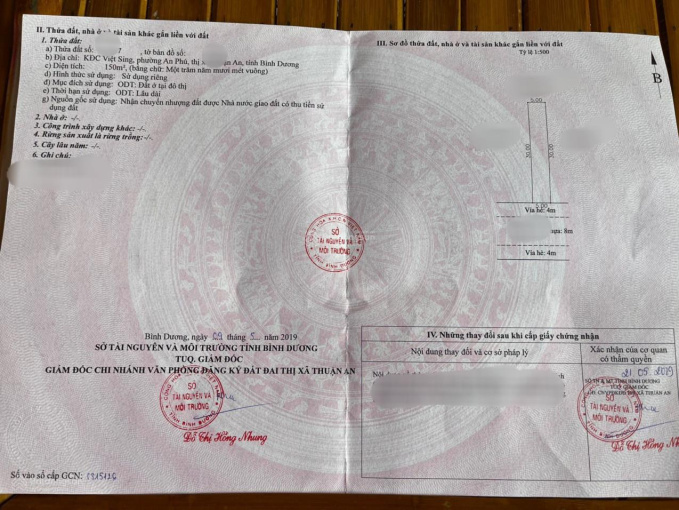 II. Thửa đất, nhà ở và tài sản khác gắn liền với đất
1. Thửa đất:
a) Thửa đất số: 7, tờ bản đồ số:
b) Địa chỉ: KĐC Việt Sing, phường An Phú, thị An, tỉnh Bình Dương
c) Diện tích: 150m², (bằng chữ: Một trăm năm mươi mét vuông)
d) Hình thức sử dụng: Sử dụng riêng
đ) Mục đích sử dụng: ODT: Đất ở tại đô thị
e) Thời hạn sử dụng: ODT: Lâu dài
g) Nguồn gốc sử dụng: Nhận chuyển nhượng đất được Nhà nước giao đất có thu tiền sử
dụng đất
2. Nhà ở: -/-
3. Công trình xây dựng khác: -/-
4. Rừng sản xuất là rừng trồng: -/-
5. Cây lâu năm: -/-
6. Ghi chú:
Bình Dương, ngày 09 tháng 5 năm 2019
SỞ TÀI NGUYÊN VÀ MÔI TRƯỜNG TỈNH BÌNH DƯƠNG
TUQ. GIÁM ĐỐC
GIÁM ĐỐC CHI NHÁNH VĂN PHÒNG ĐĂNG KÝ ĐẤT ĐAI THỊ XÃ THUẬN AN
SỞ
TÀI NGUYÊN VÀ
MÔI TRƯỜNG
TỈNH BÌNH DƯƠNG
Đỗ Thị Hồng Nhung
Số vào sổ cấp GCN:
CỘNG HÒA X.H.C.N VIỆT NAM
SỞ
TÀI NGUYÊN VÀ
MÔI TRƯỜNG
TỈNH BÌNH DƯƠNG
III. Sơ đồ thửa đất, nhà ở và tài sản khác gắn liền với đất
Tỷ lệ 1:500
B
5.00
30.00
30.00
5.00
Vỉa hè: 4m
ựa: 8m
Vỉa hè: 4m
IV. Những thay đổi sau khi cấp giấy chứng nhận
Nội dung thay đổi và cơ sở pháp lý
Xác nhận của cơ quan
có thẩm quyền
21.05.2019
TUQ. GIÁM ĐỐC
SỞ
TÀI NGUYÊN VÀ
MÔI TRƯỜNG
Đỗ Thị Hồng Nhung